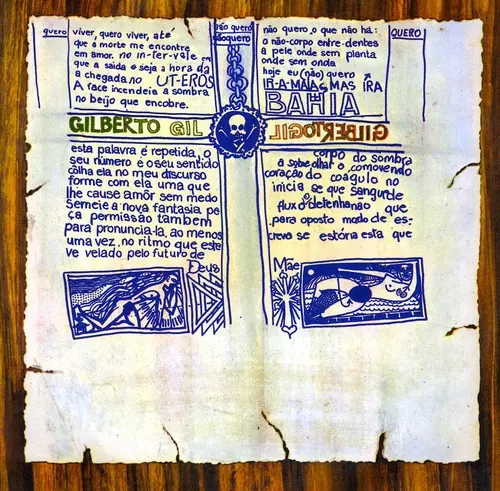 quero
viver, quero viver, até
que a morte me encontre
em amor. no in-fer-vale em
que a saida seja a hora da
a chegada no UT-EROS
A face incendeia a sombra
no beijo que encobre.
não quero
nãoquero
não quero, o que não há:
o não-corpo entre-dentes
a pele onde sem planta
onde sem onda
hoje eu (não) quero
IR-A-MAIAS MAS IRA
BAHIA
QUERO
GILBERTO GIL
GILBERTO GIL
esta palavra é repetida, o
seu número é o seu sentido
colha ela no meu discurso
forme com ela uma que
lhe cause amor sem medo
Semeie a nova fantasia, pe
ça permissão também
para pronuncia-la, ao menos
uma vez, no ritmo que este
ve velado pelo futuro de
Deus
corpo do sombra
a sobre olhar o, comovendo
coração do coagulo no
inicia se que sangue de
fluxo detenhanão que
para oposto modo de es-
crevo se estória esta que
Mãe